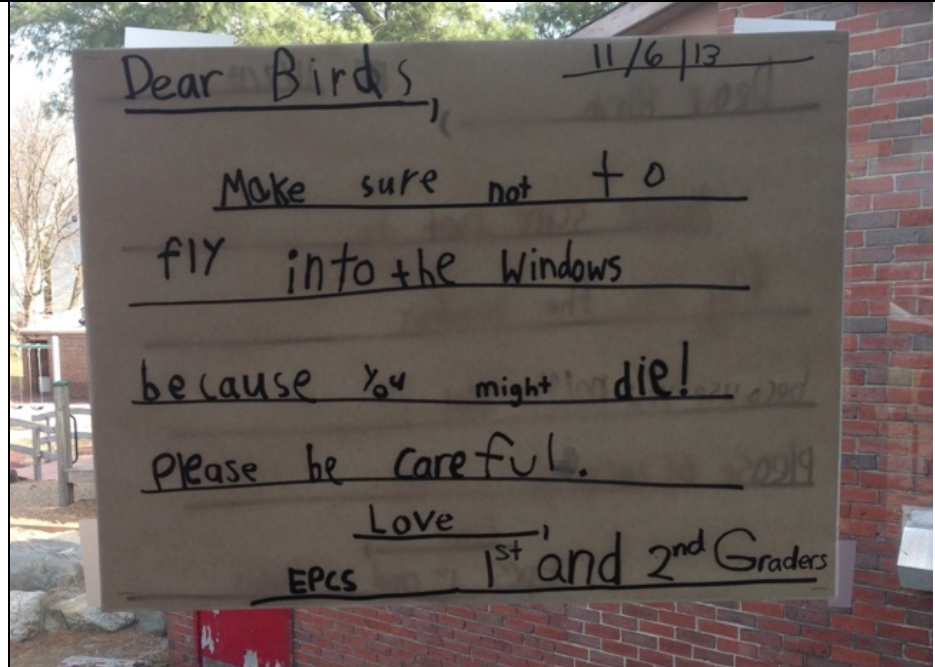 Dear Birds, 11/6/13
Make sure not to
fly into the Windows
because you might die!
Please be careful.
Love,
EPCS 1st and 2nd Graders